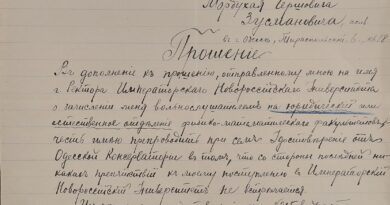 Мордухая Гершовича
Зусмановича, жив
въ г. Одессѣ, Тираспольская 6, кв. 28
Прошеніе
Въ дополненіе къ прошенію, отправленному мною на имя
г. Ректора Императорскаго Новороссійскаго Университета
о зачисленіи меня вольнослушателемъ на юридическій или
естественное отдѣленіе физико-математическаго факультетовъ,
честь имѣю препроводить при семъ Удостовѣреніе отъ
Одесской Консерваторіи въ томъ, что со стороны послѣдней ни-
какихъ препятствій къ моему поступленію въ Императорскій
Новороссійскій Университетъ не встрѣчается